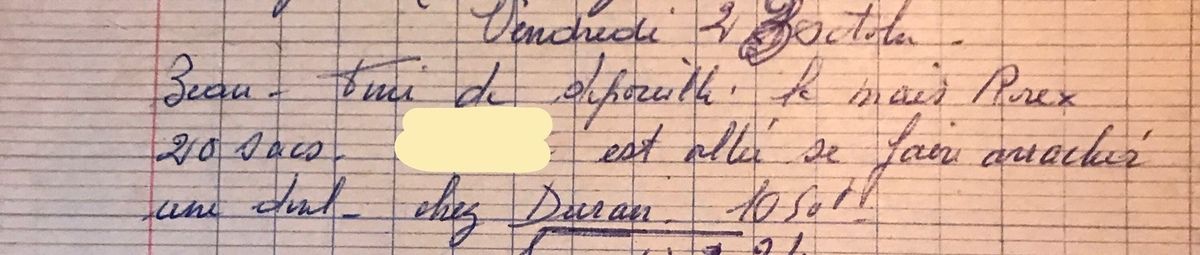 Vendredi 23 octobre.
Beau - Fini de dépouillé. le maïs Rurex
210 sacs. est allé se faire arraché
une dent - chez Duran. 10